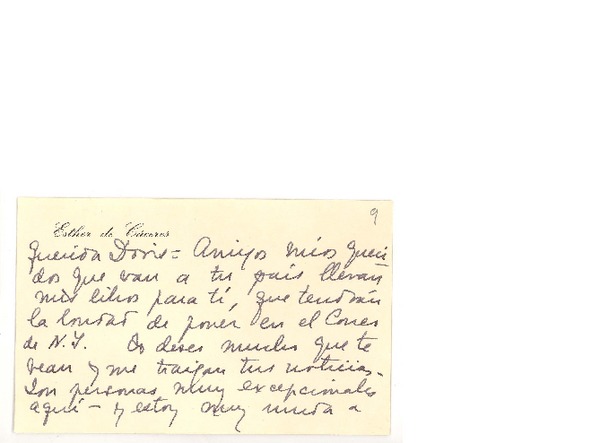 9
Esther de Cáceres
Querida Doris = Amigos míos queri
dos que van a tu país llevan
mis libros para tí, que tendrán
la bondad de poner en el Correo
de N.Y. deseo mucho que te
vean y me traigan tus noticias.
Son personas muy excepcionales
aquí - y estoy muy unida a